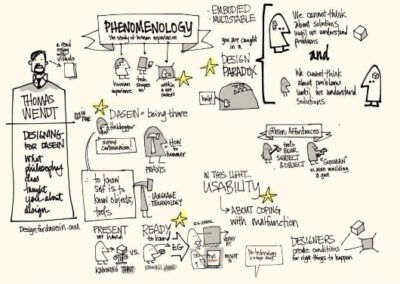 PHENOMENOLOGY
The study of human experience
human
experience
tech
shapes
us
within
EMBODIED
MULTISTABLE
you are caught
in a
DESIGN
PARADOX
help!
We cannot think
about solutions
until we understand
problems
and
We cannot think
about problems
until we understand
solutions
THOMAS
WENDT
DESIGNING
FOR DASEIN
What
philosophy
class
taught
you about
design
Designfordasein.com
DASEIN = being there
Heidegger
to know
self is to
know objects,
tools
How
to
hammer
PRAXIS
LANGUAGE
TECHNOLOGY
PRESENT
at hand
KNOWING THAT
VS.
READY
to hand
KNOWING HOW
EG
IN THIS LIGHT...
USABILITY
ABOUT COPING
with
malfunction
Affordances
tools
BLUR
SUBJECT
OBJECT
"GUNMAN"
vs man wielding
a gun
DESIGNERS
create conditions
for right things to happen